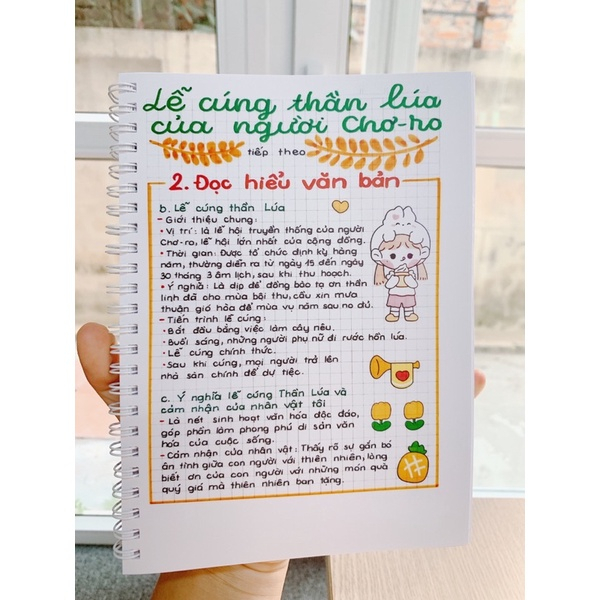 Lễ cúng thần lúa
của người Chơ-ro
tiếp theo
2. Đọc hiểu văn bản
b. Lễ cúng thần Lúa
- Giới thiệu chung:
• Vị trí: là lễ hội truyền thống của người
Chơ-ro, lễ hội lớn nhất của cộng đồng.
• Thời gian: Được tổ chức định kỳ hàng
năm, thường diễn ra từ ngày 15 đến ngày
30 tháng 3 âm lịch, sau khi thu hoạch.
• Ý nghĩa: Là dịp để đồng bào tạ ơn thần
linh đã cho mùa bội thu, cầu xin mưa
thuận gió hòa để mùa vụ năm sau no đủ.
- Tiến trình lễ cúng:
• Bắt đầu bằng việc làm cây nêu.
• Buổi sáng, những người phụ nữ đi rước hồn lúa.
• Lễ cúng chính thức.
• Sau khi cúng, mọi người trở lên
nhà sàn chính để dự tiệc.
c. Ý nghĩa lễ cúng Thần Lúa và
cảm nhận của nhân vật tôi
- Là nét sinh hoạt văn hóa độc đáo,
góp phần làm phong phú di sản văn
hóa của cuộc sống.
- Cảm nhận của nhân vật: Thấy rõ sự gắn bó
ân tình giữa con người với thiên nhiên, lòng
biết ơn của con người với những món quà
quý giá mà thiên nhiên ban tặng.